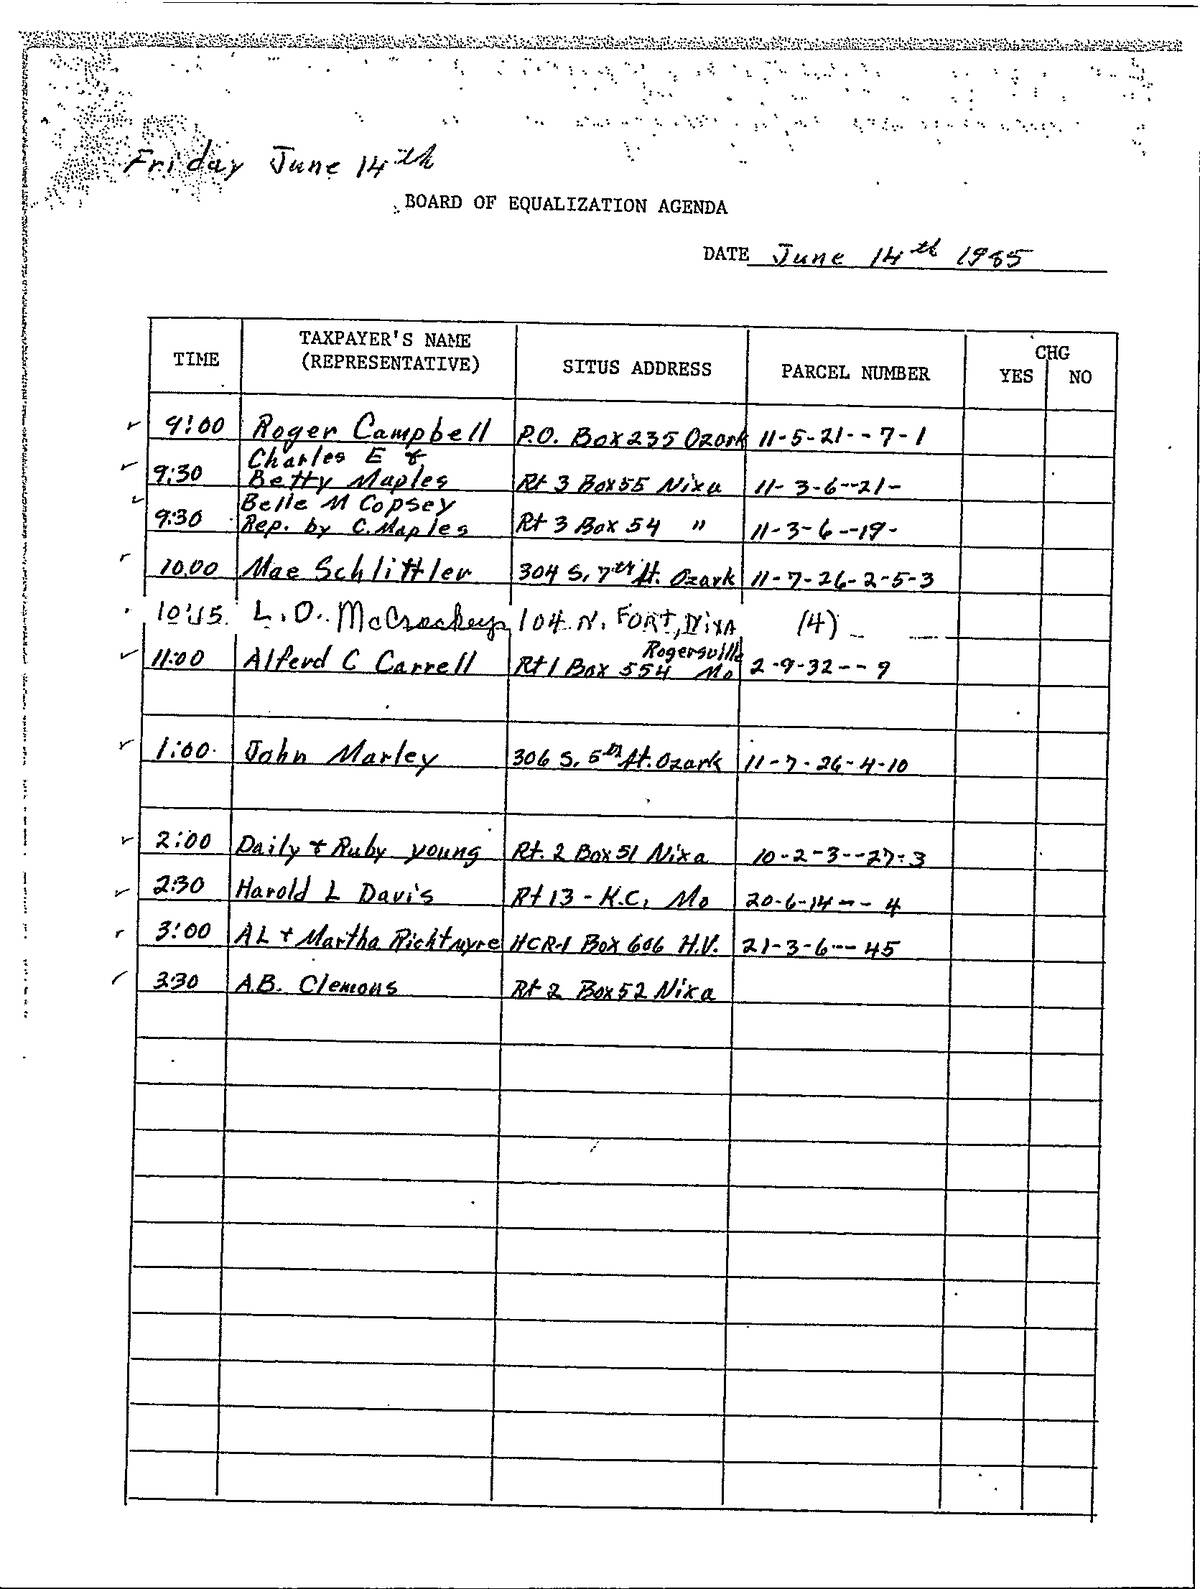 Friday June 14th
BOARD OF EQUALIZATION AGENDA
DATE June 14th 1985
TIME TAXPAYER'S NAME (REPRESENTATIVE) SITUS ADDRESS PARCEL NUMBER CHG YES NO
9:00 Roger Campbell P.O. Box 235 Ozark 11-5-21--7-1
Charles E &
9:30 Betty Maples Rt 3 Box 55 Nixa 11-3-6--21-
Belle M Copsey
9:30 Rep. by C. Maples Rt 3 Box 54 " 11-3-6--19-
10:00 Mae Schlittler 304 S. 7th St. Ozark 11-7-26-2-5-3
10:15 L.D. 104 N. FORT, NIXA (4)
Rogersville
11:00 Alferd C Carrell Rt 1 Box 554 Mo 2-9-32---9
1:00 John Marley 306 S. 5th St. Ozark 11-7-26-4-10
2:00 Daily & Ruby Young Rt. 2 Box 51 Nixa 10-2-3--27-3
2:30 Harold L Davis Rt 13 - K.C. Mo 20-6-14---4
3:00 AL + Martha Richtmyre HCR-1 Box 606 H.V. 21-3-6---45
3:30 A.B. Clemons Rt 2 Box 52 Nixa